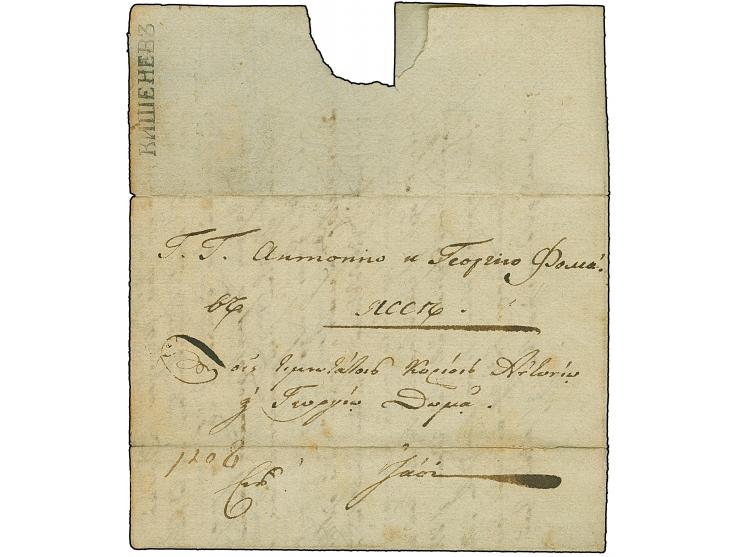 КИШЕНЕВЪ
Г. Г. Антонио и Георгио Фома.
въ ЯССЪ.
Τοῖς τιμιωτάτοις Κυρίοις Ἀντωνίῳ
ϗ Γεωργίῳ Θωμᾷ.
Εἰς Ἰάσι